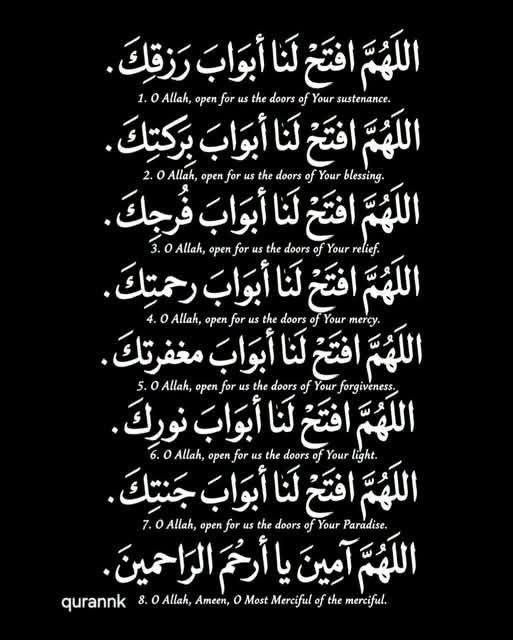 اللَهُمَّ افتَحْ لَنا أبوَابَ رَزقِكَ.
1. O Allah, open for us the doors of Your sustenance.
اللَهُمَّ افتَحْ لَنا أبوَابَ بِرَكتِكَ.
2. O Allah, open for us the doors of Your blessing.
اللَهُمَّ افتَحْ لَنا أبوَابَ فُرجِكَ.
3. O Allah, open for us the doors of Your relief.
اللَهُمَّ افتَحْ لَنا أبوَابَ رحمتِكَ.
4. O Allah, open for us the doors of Your mercy.
اللَهُمَّ افتَحْ لَنا أبوَابَ مغفرتكَ.
5. O Allah, open for us the doors of Your forgiveness.
اللَهُمَّ افتَحْ لَنا أبوَابَ نورِكَ.
6. O Allah, open for us the doors of Your light.
اللَهُمَّ افتَحْ لَنا أبوَابَ جَنتِكَ.
7. O Allah, open for us the doors of Your Paradise.
اللَهُمَّ آمِينَ يا أرحُمَ الرَاحمينَ.
8. O Allah, Ameen, O Most Merciful of the merciful.
qurannk